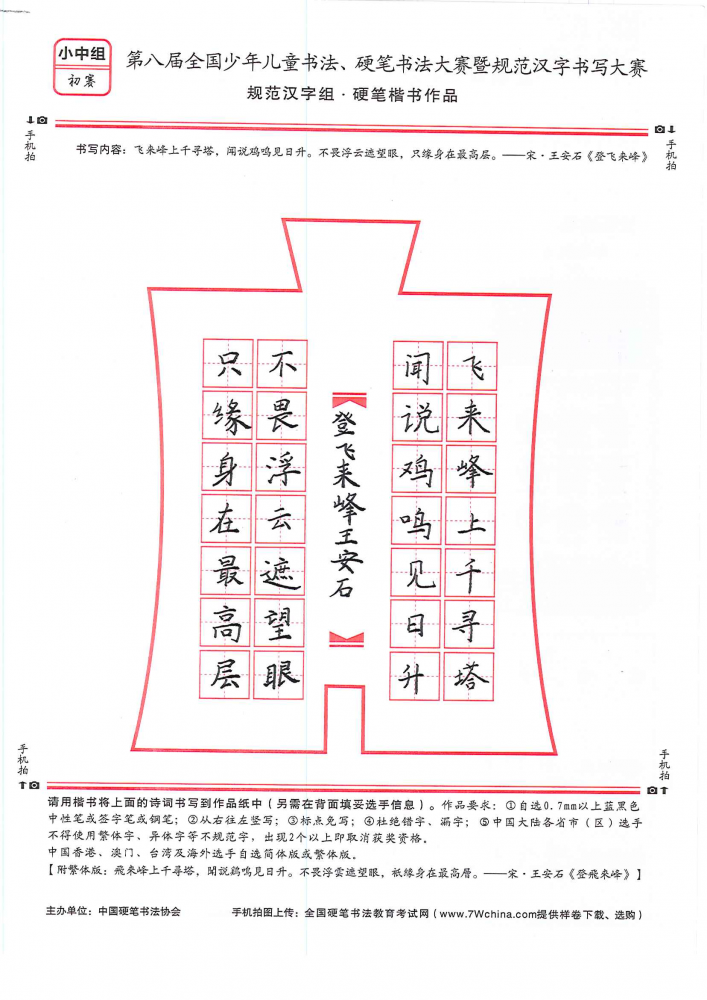 小中组
初赛
第八届全国少年儿童书法、硬笔书法大赛暨规范汉字书写大赛
规范汉字组·硬笔楷书作品
手机拍
手机拍
书写内容：飞来峰上千寻塔，闻说鸡鸣见日升。不畏浮云遮望眼，只缘身在最高层。——宋·王安石《登飞来峰》
飞来峰上千寻塔
闻说鸡鸣见日升
登飞来峰王安石
不畏浮云遮望眼
只缘身在最高层
手机拍
手机拍
请用楷书将上面的诗词书写到作品纸中（另需在背面填妥选手信息）。作品要求：①自选0.7mm以上蓝黑色
中性笔或签字笔或钢笔；②从右往左竖写；③标点免写；④杜绝错字、漏字；⑤中国大陆各省市（区）选手
不得使用繁体字、异体字等不规范字，出现2个以上即取消获奖资格。
中国香港、澳门、台湾及海外选手自选简体版或繁体版。
【附繁体版：飛來峰上千尋塔，聞説鷄鳴見日升。不畏浮雲遮望眼，祇緣身在最高層。——宋·王安石《登飛來峰》】
主办单位：中国硬笔书法协会 手机拍图上传：全国硬笔书法教育考试网（www.7Wchina.com提供样卷下载、选购）